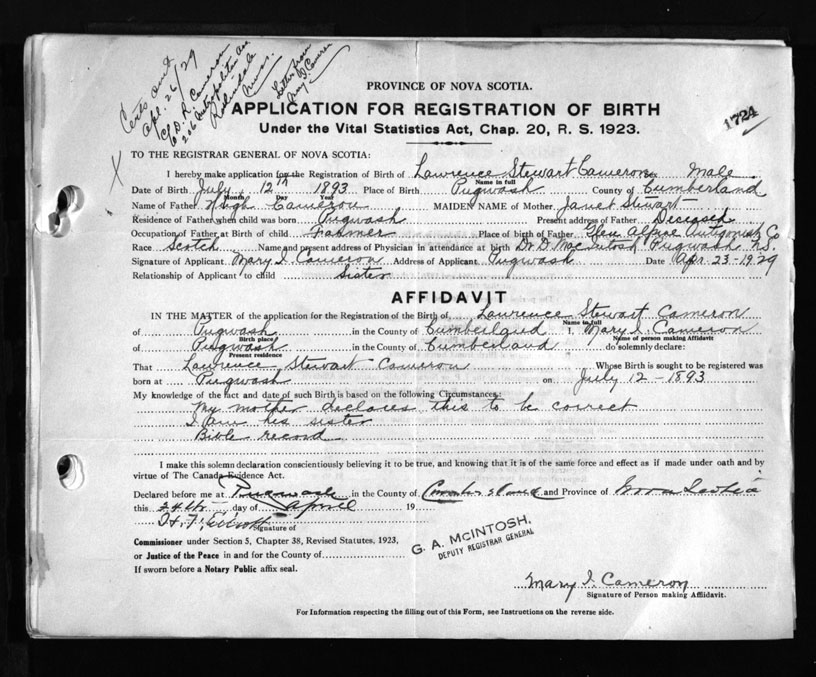 Certs out
Apl. 26/29
C/o D. R. Cameron
206 Metropolitan Ave
Roslindale
Mass.
Letter from
Mary I. Cameron
PROVINCE OF NOVA SCOTIA.
1724
APPLICATION FOR REGISTRATION OF BIRTH
Under the Vital Statistics Act, Chap. 20, R. S. 1923.
X
TO THE REGISTRAR GENERAL OF NOVA SCOTIA:
I hereby make application for the Registration of Birth of Lawrence Stewart Cameron Male
Name in full
Date of Birth July 12th 1893 Place of Birth Pugwash County of Cumberland
Month Day Year
Name of Father Hugh Cameron MAIDEN NAME of Mother Janet Stewart
Residence of Father when child was born Pugwash Present address of Father Deceased
Occupation of Father at Birth of child Farmer Place of birth of Father Glen Alpine Antigonish Co
Race Scotch Name and present address of Physician in attendance at birth Dr. D. MacIntosh Pugwash N.S.
Signature of Applicant Mary I Cameron Address of Applicant Pugwash Date Apr 23-1929
Relationship of Applicant to child Sister
AFFIDAVIT
IN THE MATTER of the application for the Registration of the Birth of, Lawrence Stewart Cameron
Name in full
of Pugwash in the County of Cumberland I, Mary I. Cameron
Birth place Name of person making Affidavit
of Pugwash in the County of Cumberland do solemnly declare:
Present residence
That Lawrence Stewart Cameron Whose Birth is sought to be registered was
born at Pugwash on July 12-1893
My knowledge of the fact and date of such Birth is based on the following Circumstances:
My mother declares this to be correct
I am his sister
Bible record
I make this solemn declaration conscientiously believing it to be true, and knowing that it is of the same force and effect as if made under oath and by
virtue of The Canada Evidence Act.
Declared before me at Pugwash in the County of Cumberland and Province of Nova Scotia
this 24th day of April 19
Signature of
Commissioner under Section 5, Chapter 38, Revised Statutes, 1923,
or Justice of the Peace in and for the County of
If sworn before a Notary Public affix seal.
G. A. McINTOSH,
DEPUTY REGISTRAR GENERAL
Mary I. Cameron
Signature of Person making Affidavit.
For Information respecting the filling out of this Form, see Instructions on the reverse side.